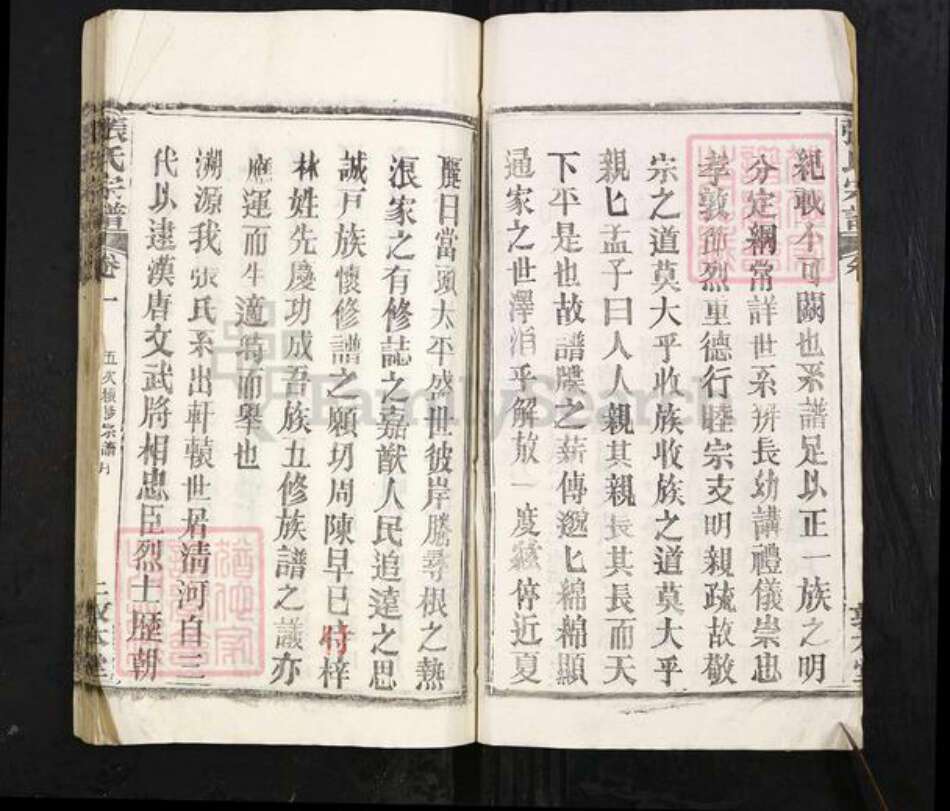 紀敢不可闕也系譜足以正一族之明
分定綱常詳世系辨長幼講禮儀崇忠
孝敦節烈重德行睦宗支明親疏故敬
宗之道莫大乎收族收族之道莫大乎
親匕孟子曰人人親其親長其長而天
下平是也故譜牒之薪傳邈匕綿綿顯
通家之世澤消乎解放一度霾停近夏
麗日當頭太平盛世彼岸騰尋根之熱
浪家之有修誌之嘉猷人民追遠之思
誠戸族懷修譜之願切周陳早已付梓
林姓先慶功成吾族五修族譜之議亦
應運而生適時而舉也
溯源我張氏系出軒轅世居清河自三
代以逮漢唐文武將相忠臣烈士歷朝
張氏宗譜
卷一
五次續修宗譜序
敦本堂
FamilySearch